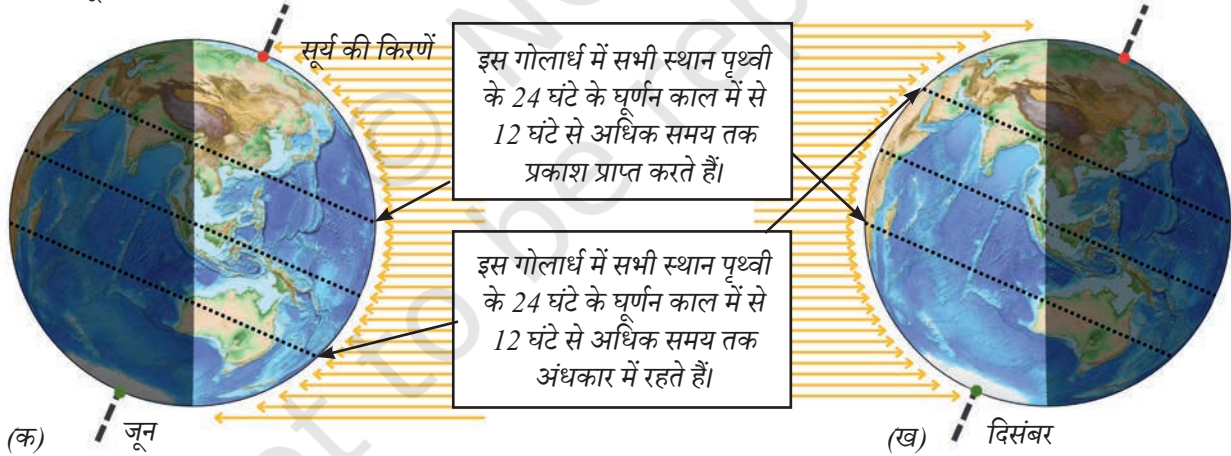 सूर्य की किरणें
इस गोलार्ध में सभी स्थान पृथ्वी
के 24 घंटे के घूर्णन काल में से
12 घंटे से अधिक समय तक
प्रकाश प्राप्त करते हैं।
इस गोलार्ध में सभी स्थान पृथ्वी
के 24 घंटे के घूर्णन काल में से
12 घंटे से अधिक समय तक
अंधकार में रहते हैं।
(क) जून
(ख) दिसंबर